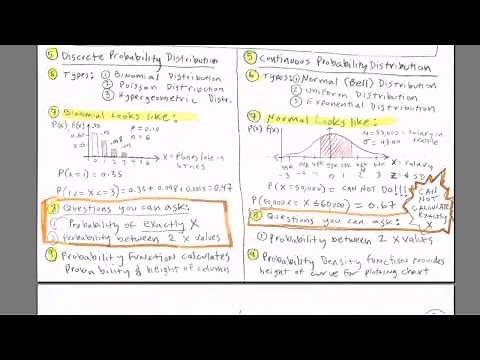 ⑤ Discrete Probability Distribution
⑥ Types: ① Binomial Distribution
② Poisson Distribution
③ Hypergeometric Distr.
⑦ Binomial Looks like:
P(x) f(x)
p = 0.10
n = 6
0 1 2 3 4 5 6
P(x=1) = 0.35
P(1<= x <=3) = 0.35 + 0.098 +
= 0.47
⑧ Questions you can ask:
① Probability of exactly X
② Probability between 2 X values
⑨ Probability Function calculates
Probability & height of column
⑤ Continuous Probability Distribution
⑥ Types: ① Normal (Bell) Distribution
② Uniform Distribution
③ Exponential Distribution
⑦ Normal Looks like:
P(x) f(x)
X = Salary
-3 -2 -1 0 1 2 3 Z
P(X = 50,000) = CAN NOT DO!!!
P(50,000 <= X <= 60000) = 0.67
CAN
NOT
CALCULATE
Exactly
X
⑧ Questions you can ask:
① Probability between 2 X values
⑨ Probability Density Function provides
height of curve for plotting chart